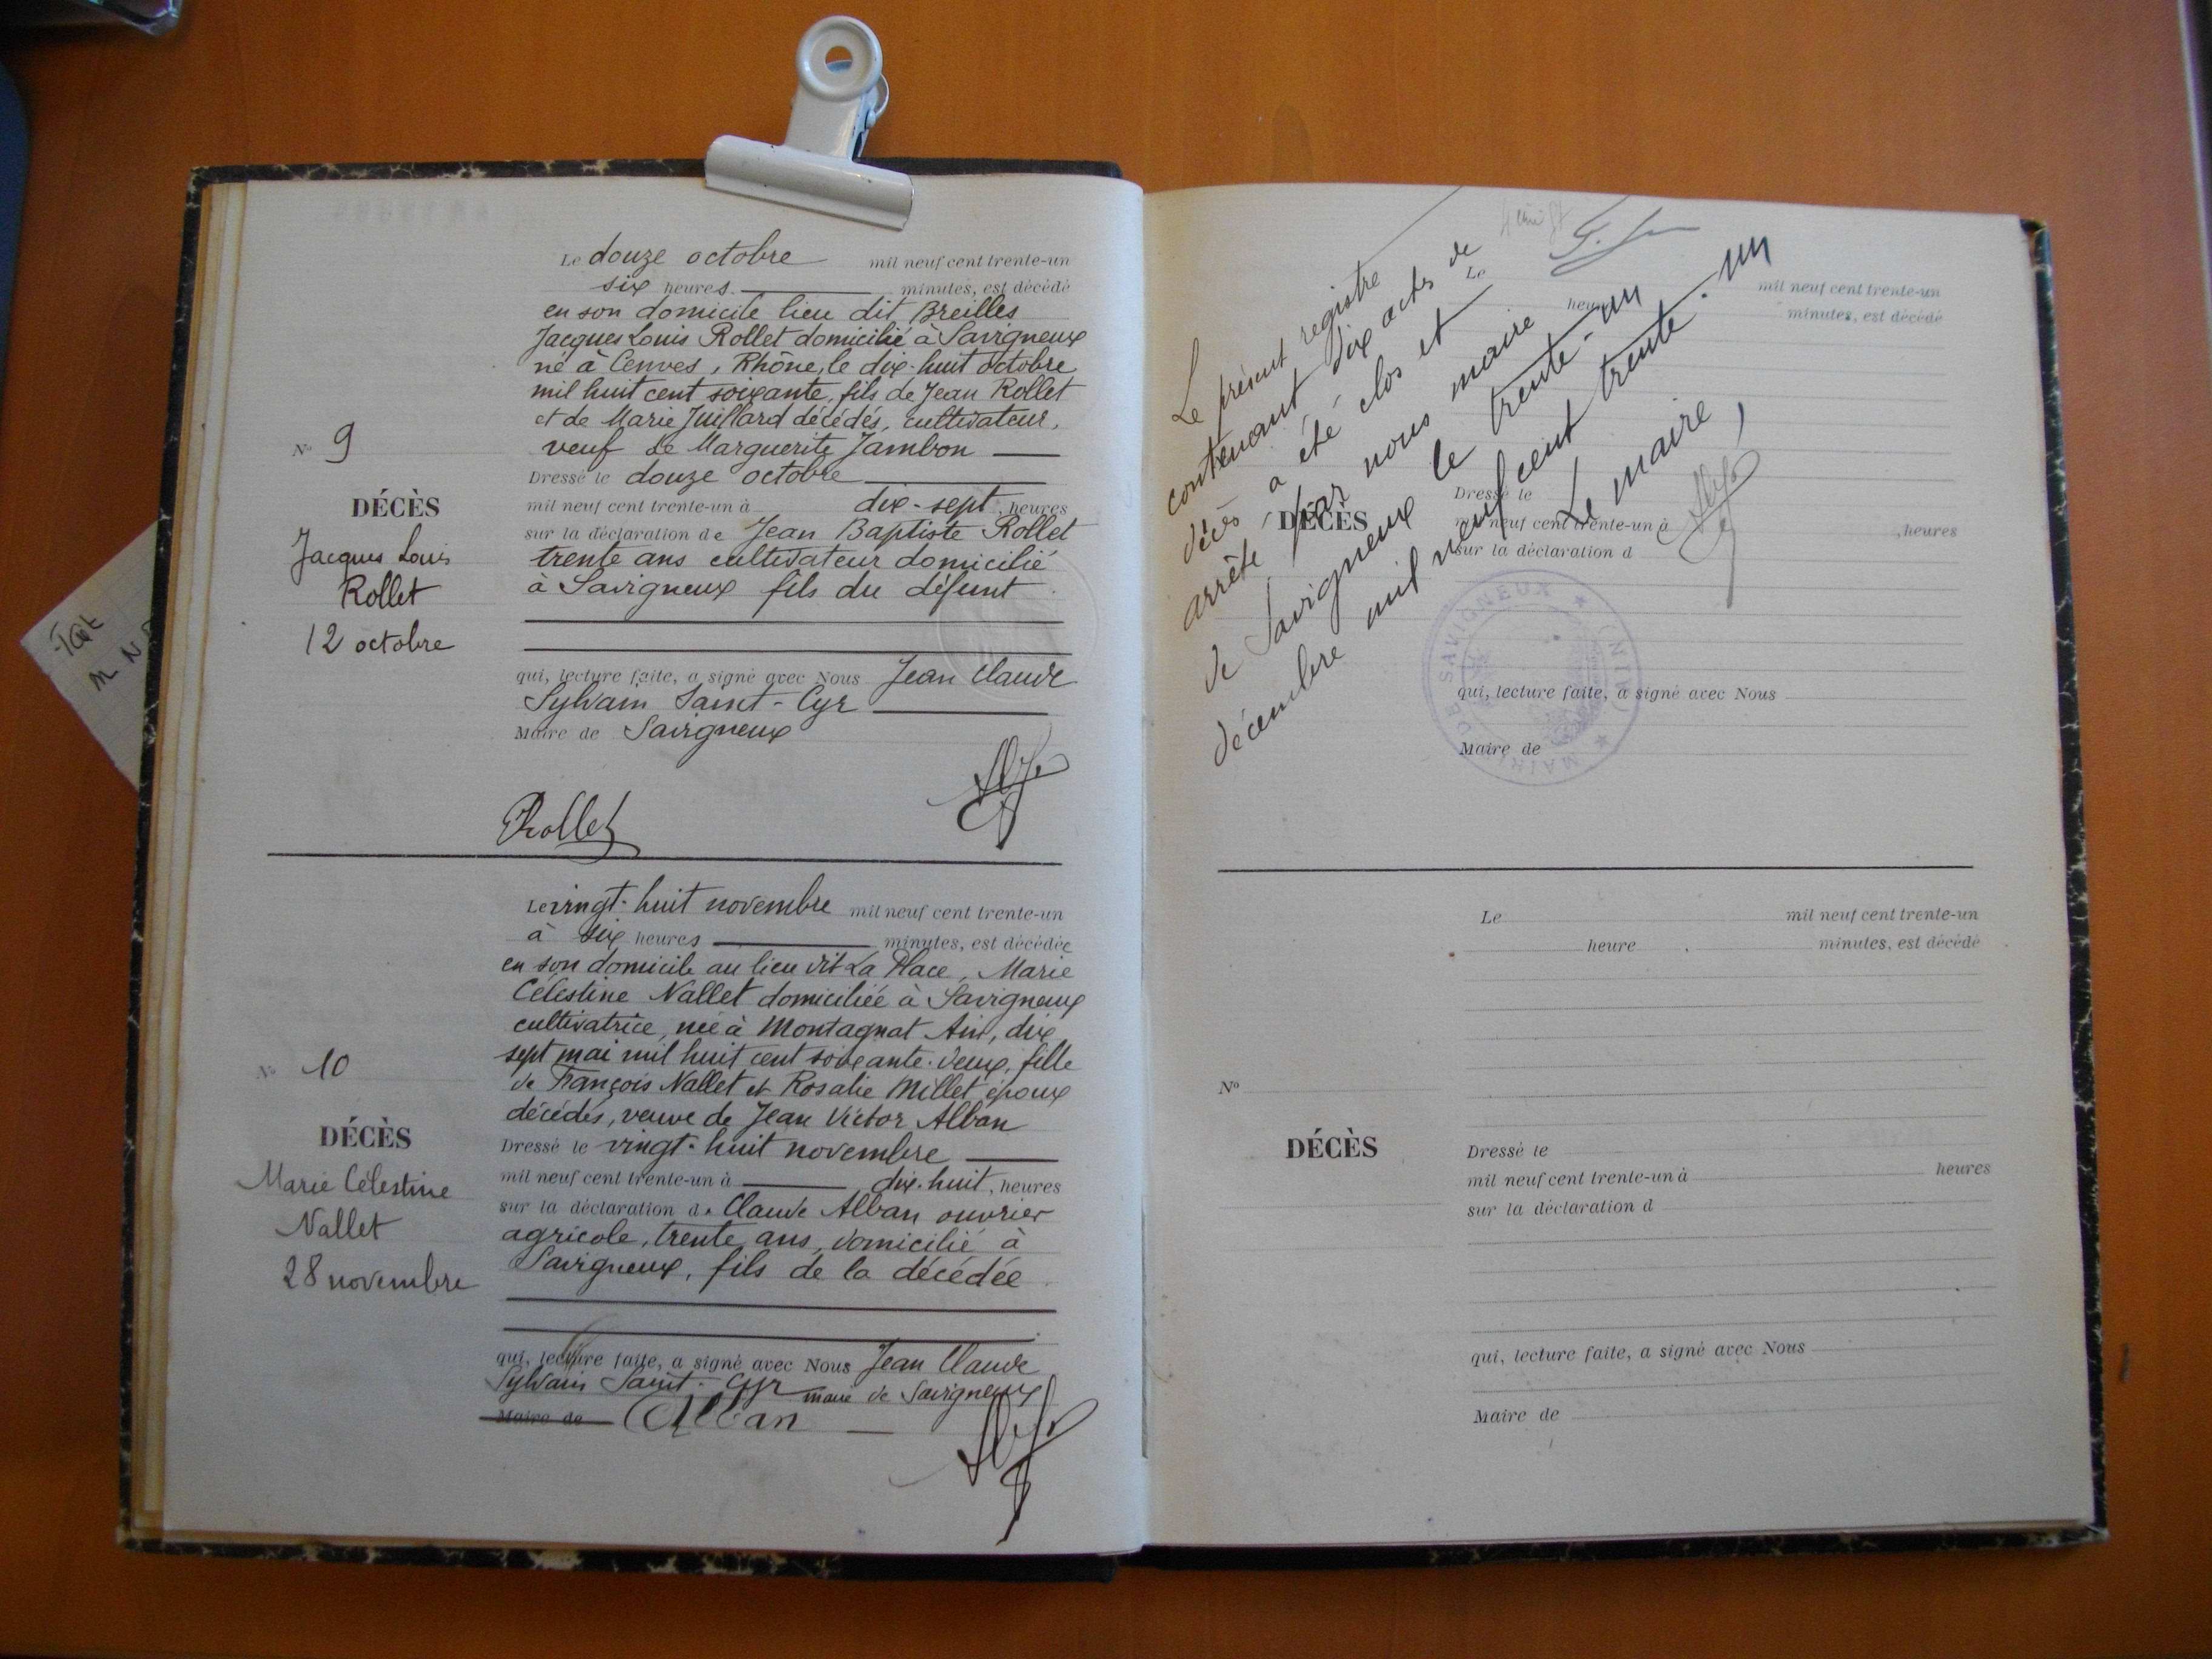 Le douze octobre mil neuf cent trente-un
six heures. minutes, est décédé
en son domicile lieu dit Breilles
Jacques Louis Rollet domicilié à Savigneux
né à Cenves, Rhône, le dix-huit octobre
mil huit cent soixante, fils de Jean Rollet
et de Marie Juillard décédés, cultivateur,
veuf de Marguerite Jambon
Dressé le douze octobre
mil neuf cent trente-un à dix-sept, heures
sur la déclaration de Jean Baptiste Rollet
trente ans cultivateur domicilié
à Savigneux fils du défunt
qui, lecture faite, a signé avec Nous Jean Claude
Sylvain Saint-Cyr
Maire de Savigneux
Rollet
N° 9
DÉCÈS
Jacques Louis
Rollet
12 octobre
Le vingt-huit novembre mil neuf cent trente-un
à six heures minutes, est décédée
en son domicile au lieu dit La Place, Marie
Célestine Nallet domiciliée à Savigneux
cultivatrice, née à Montagnat Ain, dix
sept mai mil huit cent soixante-deux, fille
de François Nallet et Rosalie Millet époux
décédés, veuve de Jean Victor Alban
Dressé le vingt-huit novembre
mil neuf cent trente-un à dix-huit, heures
sur la déclaration de Claude Alban ouvrier
agricole, trente ans, domicilié à
Savigneux, fils de la décédée
qui, lecture faite, a signé avec Nous Jean Claude
Sylvain Saint-Cyr maire de Savigneux
Maire de Alban
N° 10
DÉCÈS
Marie Célestine
Nallet
28 novembre
Le présent registre
contenant dix actes de
décès a été clos et
arrêté par nous maire
de Savigneux le trente-un
décembre mil neuf cent trente-un
Le maire,
Le mil neuf cent trente-un
heure minutes, est décédé
DÉCÈS
Dressé le
mil neuf cent trente-un à , heures
sur la déclaration d
qui, lecture faite, a signé avec Nous
Maire de
MAIRIE DE SAVIGNEUX ★ (AIN) ★
Le mil neuf cent trente-un
heure minutes, est décédé
N°
DÉCÈS
Dressé le
mil neuf cent trente-un à heures
sur la déclaration d
qui, lecture faite, a signé avec Nous
Maire de